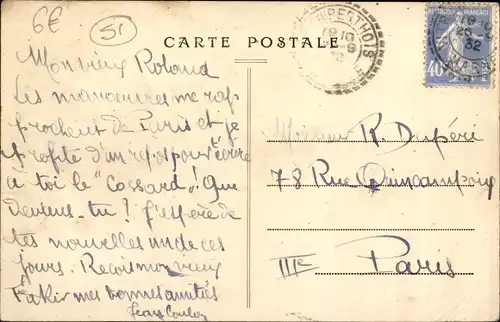 6€
51
CARTE POSTALE
40
Mon vieux Roland
Les manoeuvres me rap
prochent de Paris et je
profite d'un repos pour t'écrire
à toi le "Cossard"! Que
deviens-tu? J'espère de
tes nouvelles un de ces
jours. Reçois mon vieux
Fakir mes bonnes amitiés
Jean
Monsieur R. Dupéré
78 Rue Quincampoix
IIIe Paris